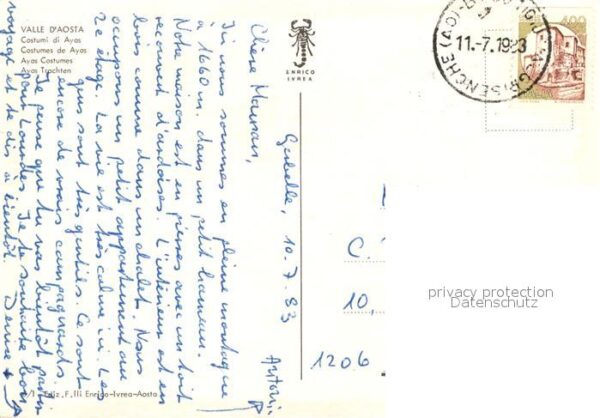 VALLE D'AOSTA
Costumi di Ayas
Costumes de Ayas
Ayas Costumes
Ayas Trachten
ENRICO
IVREA
11.-7.1983
GRISENCHE (AO)
400
Gubelle, 10.7.83
Chère Maman,
Ici nous sommes en pleine montagne
à 1660 m. dans un petit hameau.
Notre maison est en pierres avec un toit
recouvert d'ardoises. L'intérieur est en
bois comme dans un chalet. Nous
occupons un petit appartement au
2e étage. La vue est très calme ici. Les
gens sont très gentils. Ce sont
encore de vrais campagnards.
Je pense que tu vas bientôt partir
pour Lourdes. Je te souhaite bon
voyage et te dis à bientôt. Denise +
Antoni
C.
10,
1206
privacy protection
Datenschutz
Ediz. F.lli Enrico-Ivrea-Aosta